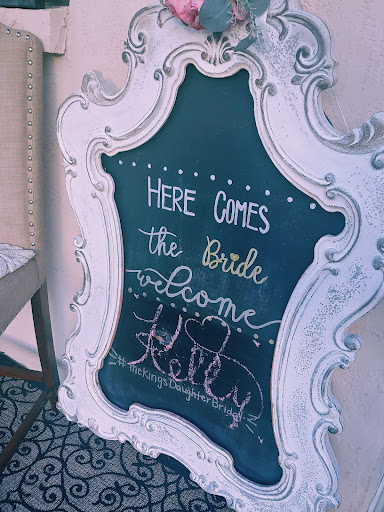 HERE COMES
the Bride
welcome
Kelly
#theKingsDaughterBridal